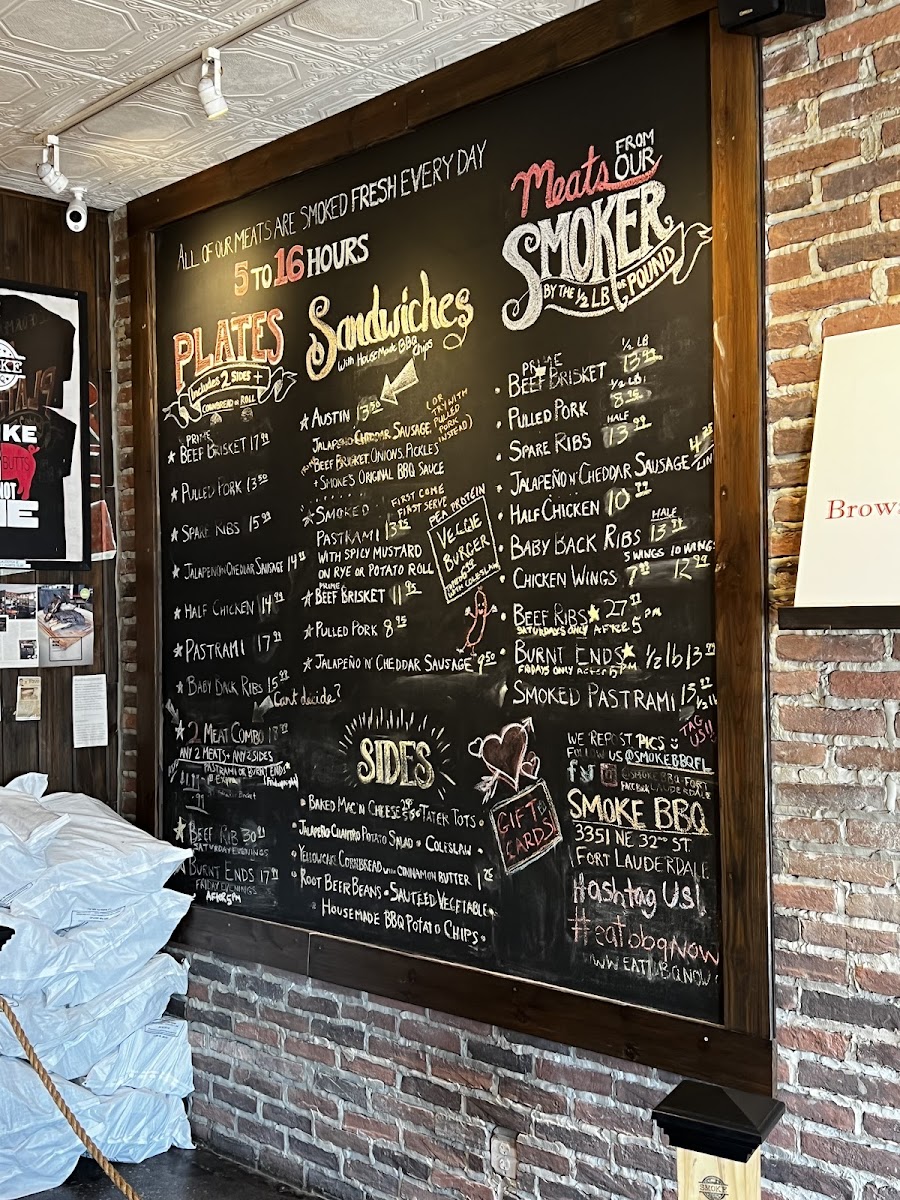 ALL OF OUR MEATS ARE SMOKED FRESH EVERY DAY
5 TO 16 HOURS
PLATES
Includes 2 SIDES +
CORNBREAD OR ROLL
PRIME
BEEF BRISKET 17.99
PULLED PORK 13.50
SPARE RIBS 15.99
JALAPEÑO N' CHEDDAR SAUSAGE 14.99
HALF CHICKEN 14.99
PASTRAMI 17.99
BABY BACK RIBS 15.99
Can't decide?
2 MEAT COMBO 18.99
ANY 2 MEATS + ANY 2 SIDES
PASTRAMI OR BURNT ENDS
BEEF RIB 30.99
SATURDAY EVENINGS
BURNT ENDS 17.99
FRIDAY EVENINGS
AFTER 5PM
Sandwiches
With HouseMade BBQ Chips
AUSTIN 13.50
(OR TRY WITH PULLED PORK INSTEAD)
JALAPEÑO CHEDDAR SAUSAGE
PRIME BEEF BRISKET, ONIONS, PICKLES
+ SMOKE'S ORIGINAL BBQ SAUCE
SMOKED
FIRST COME
FIRST SERVE
PASTRAMI 13.95
WITH SPICY MUSTARD
ON RYE OR POTATO ROLL
PRIME
BEEF BRISKET 11.95
PULLED PORK 8.95
JALAPEÑO N' CHEDDAR SAUSAGE 9.50
PEA PROTEIN
VEGGIE
BURGER
WITH COLESLAW
SIDES
BAKED MAC 'N CHEESE TATER TOTS
JALAPEÑO CILANTRO POTATO SALAD • COLESLAW
YELLOWCAKE CORNBREAD WITH CINNAMON BUTTER 1.25
ROOT BEER BEANS • SAUTEED VEGETABLE
HOUSEMADE BBQ POTATO CHIPS
GIFT
CARDS
Meats FROM OUR
SMOKER
BY THE 1/2 LB OR POUND
PRIME
1/2 LB
BEEF BRISKET 13.99
1/2 LB
PULLED PORK 8.95
HALF
SPARE RIBS 13.99
JALAPEÑO N' CHEDDAR SAUSAGE 4.25
HALF CHICKEN 10
HALF
BABY BACK RIBS 13.99
5 WINGS 10 WINGS
CHICKEN WINGS 7.99 12.99
BEEF RIBS 27.99
SATURDAYS ONLY AFTER 5PM
BURNT ENDS 1/2 lb 13.99
FRIDAYS ONLY AFTER 5PM
SMOKED PASTRAMI 13.99
WE REPOST PICS
TAG US!!
FOLLOW US @SMOKEBBQFL
@SMOKEBBQ-FORT
LAUDERDALE
FACEBOOK
SMOKE BBQ
3351 NE 32ND ST
FORT LAUDERDALE
Hashtag US!
#eatbbqNOW
WWW EATBBQNOW
Brow
BUTTS
SMOKE